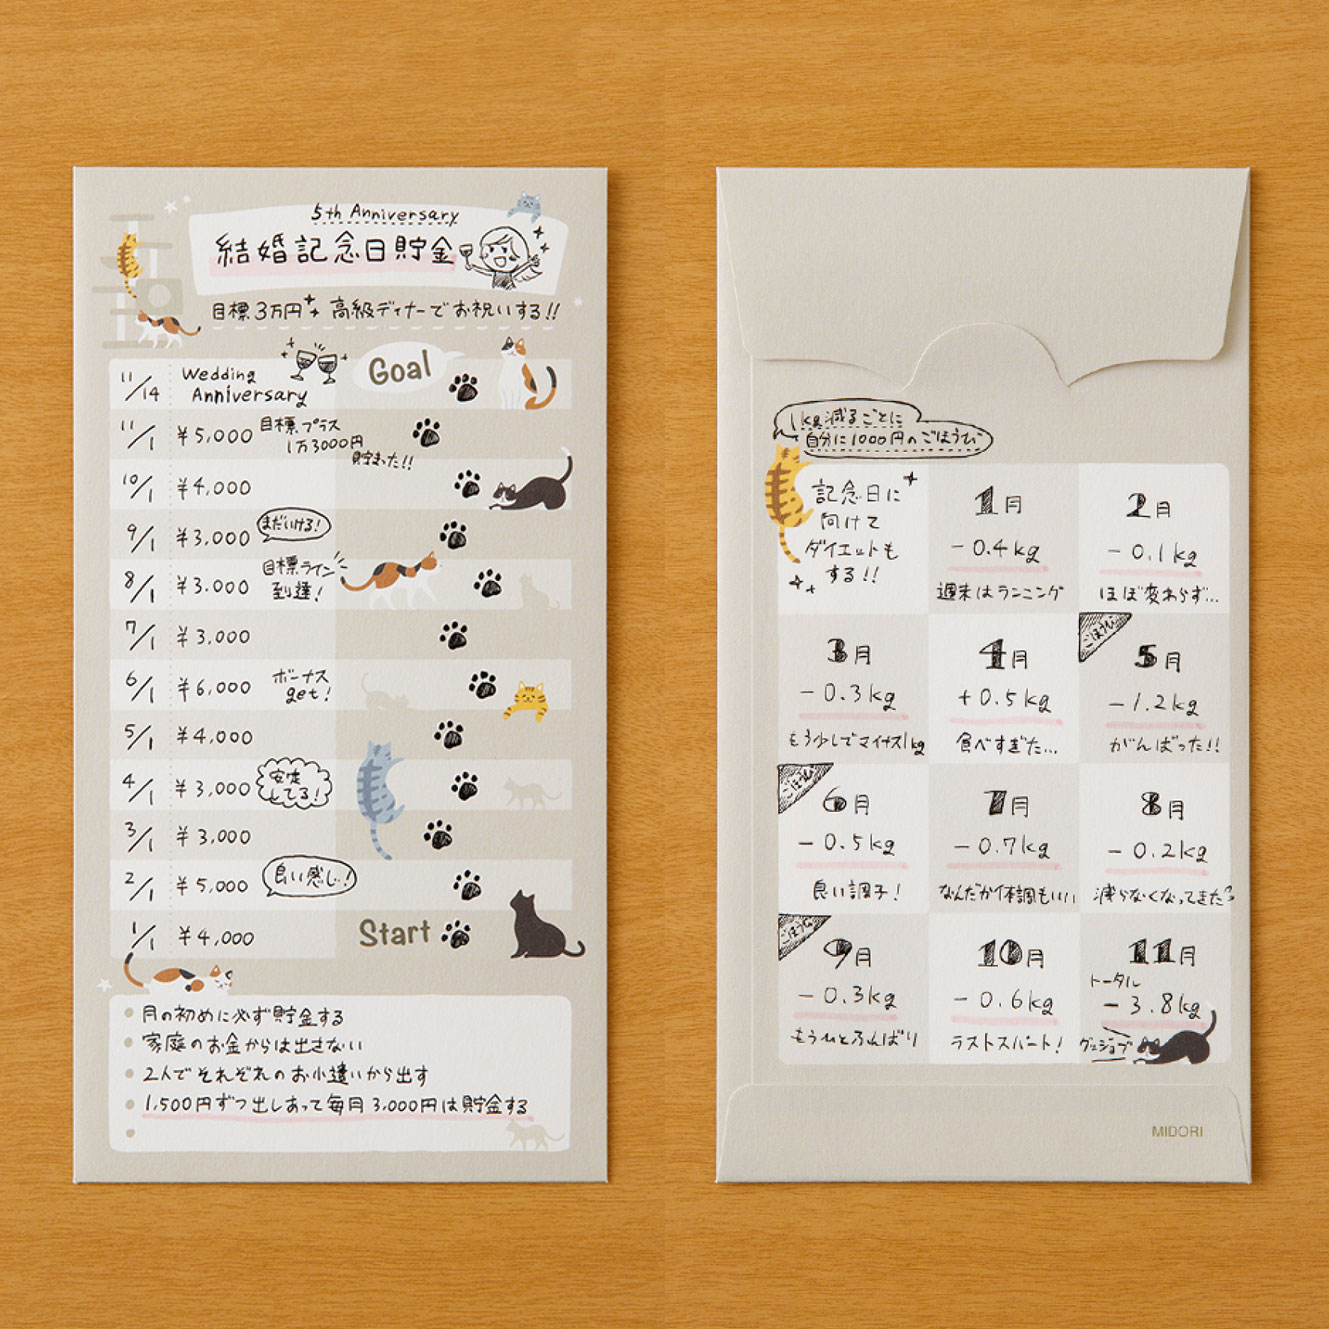 5th Anniversary
結婚記念日貯金
目標3万円 高級ディナーでお祝いする!!
Goal
11/14 Wedding
Anniversary
11/1 ¥5,000 目標プラス
1万3000円
貯まった!!
10/1 ¥4,000
9/1 ¥3,000 まだいける!
8/1 ¥3.000 目標ライン
到達!
7/1 ¥3,000
6/1 ¥6,000 ボーナス
get!
5/1 ¥4,000
4/1 ¥3,000 安定
してる!
3/1 ¥3,000
2/1 ¥5,000 良い感じ!
1/1 ¥4,000 Start
月の初めに必ず貯金する
家庭のお金からは出さない
2人でそれぞれのお小遣いから出す
1,500円ずつ出しあって毎月3,000円は貯金する
1kg減るごとに
自分に1000円のごほうび
記念日に
向けて
ダイエットも
する!!
1月
-0.4kg
週末はランニング
2月
-0.1kg
ほぼ変わらず…
3月
-0.3kg
もう少しでマイナス1kg
4月
+0.5kg
食べすぎた…
ごほうび
5月
-1.2kg
がんばった!!
ごほうび
6月
-0.5kg
良い調子!
7月
-0.7kg
なんだか体調もいい
8月
-0.2kg
減らなくなってきた?
ごほうび
9月
-0.3kg
もうひとふんばり
10月
-0.6kg
ラストスパート!
11月
トータル
-3.8kg
グッジョブ
MIDORI